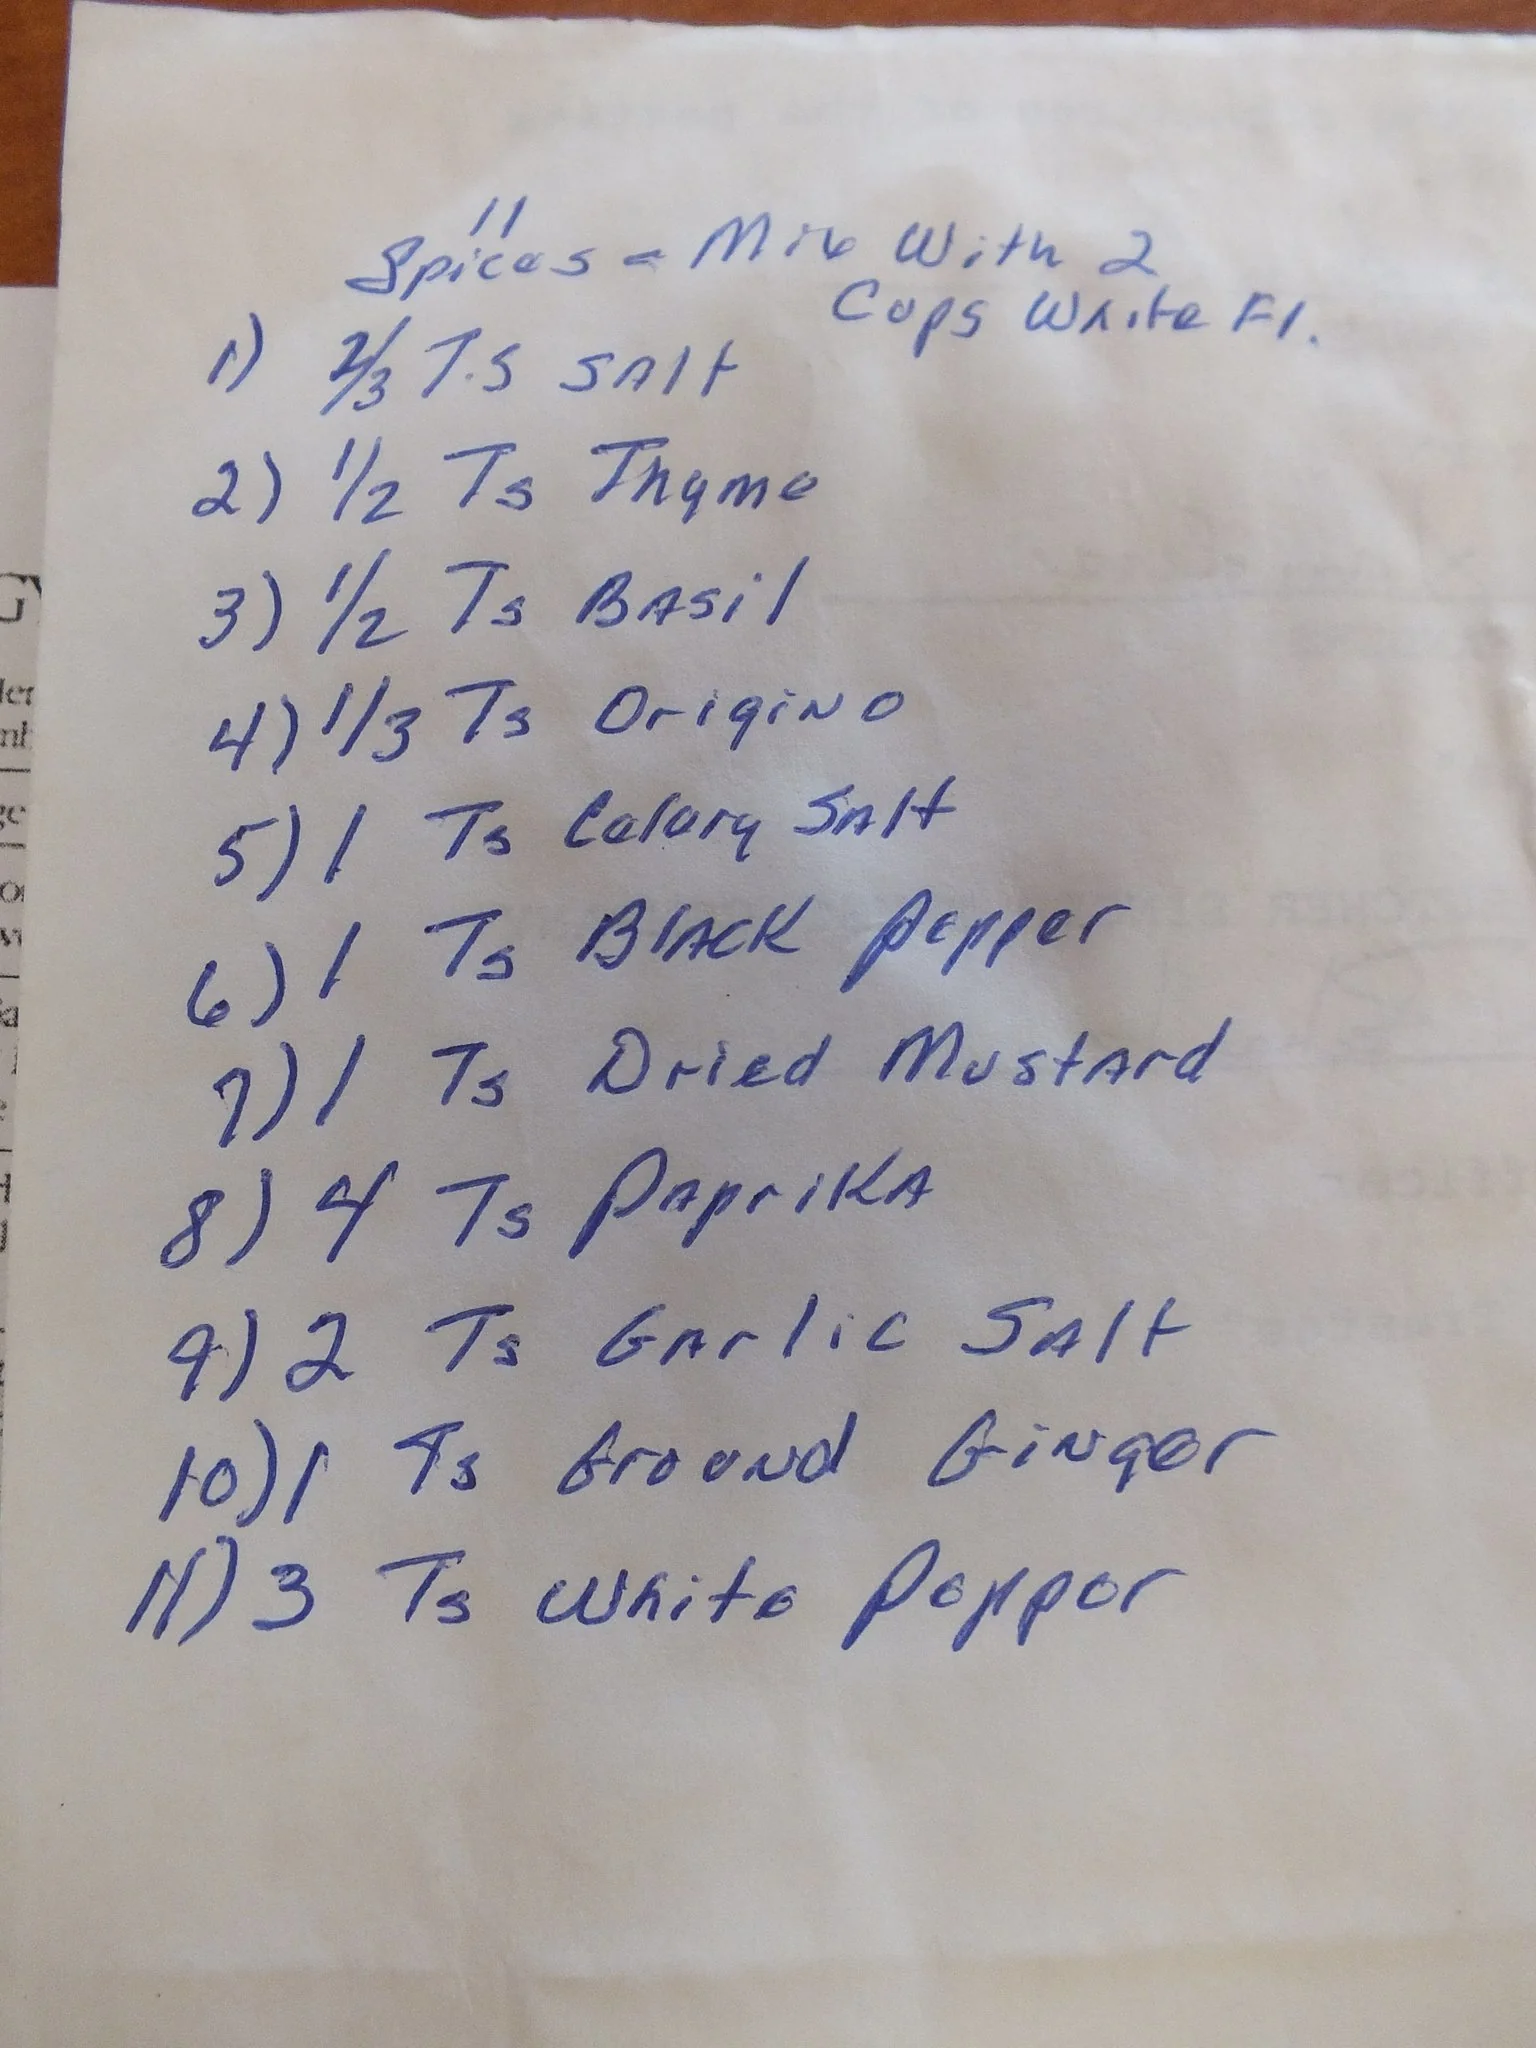 11
Spices = Mix With 2
Cups White Fl.
1) 2/3 T.S SAlt
2) 1/2 Ts Thyme
3) 1/2 Ts BAsil
4) 1/3 Ts Origino
5) 1 Ts Celery SAlt
6) 1 Ts BlAcK Pepper
7) 1 Ts Dried MustArd
8) 4 Ts PApriKA
9) 2 Ts GArlic SAlt
10) 1 Ts Ground Ginger
11) 3 Ts White Pepper